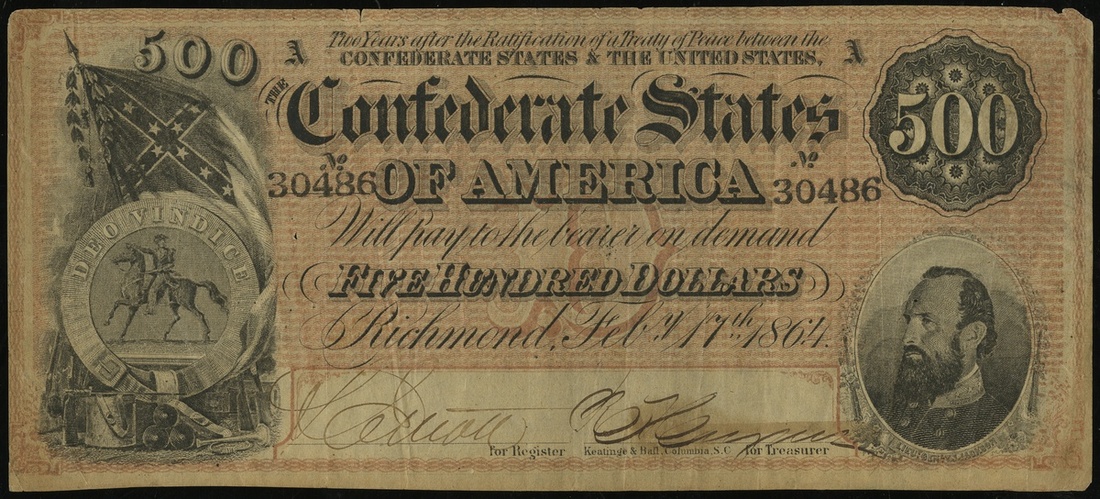 500
A
Two Years after the Ratification of a Treaty of Peace between the
A
CONFEDERATE STATES & THE UNITED STATES,
THE
Confederate States
500
No
No
30486 OF AMERICA 30486
Will pay to the bearer on demand
DEO VINDICE
FIVE HUNDRED DOLLARS
Richmond, Feby 17th 1864.
for Register
Keatinge & Ball, Columbia, S.C.
for Treasurer